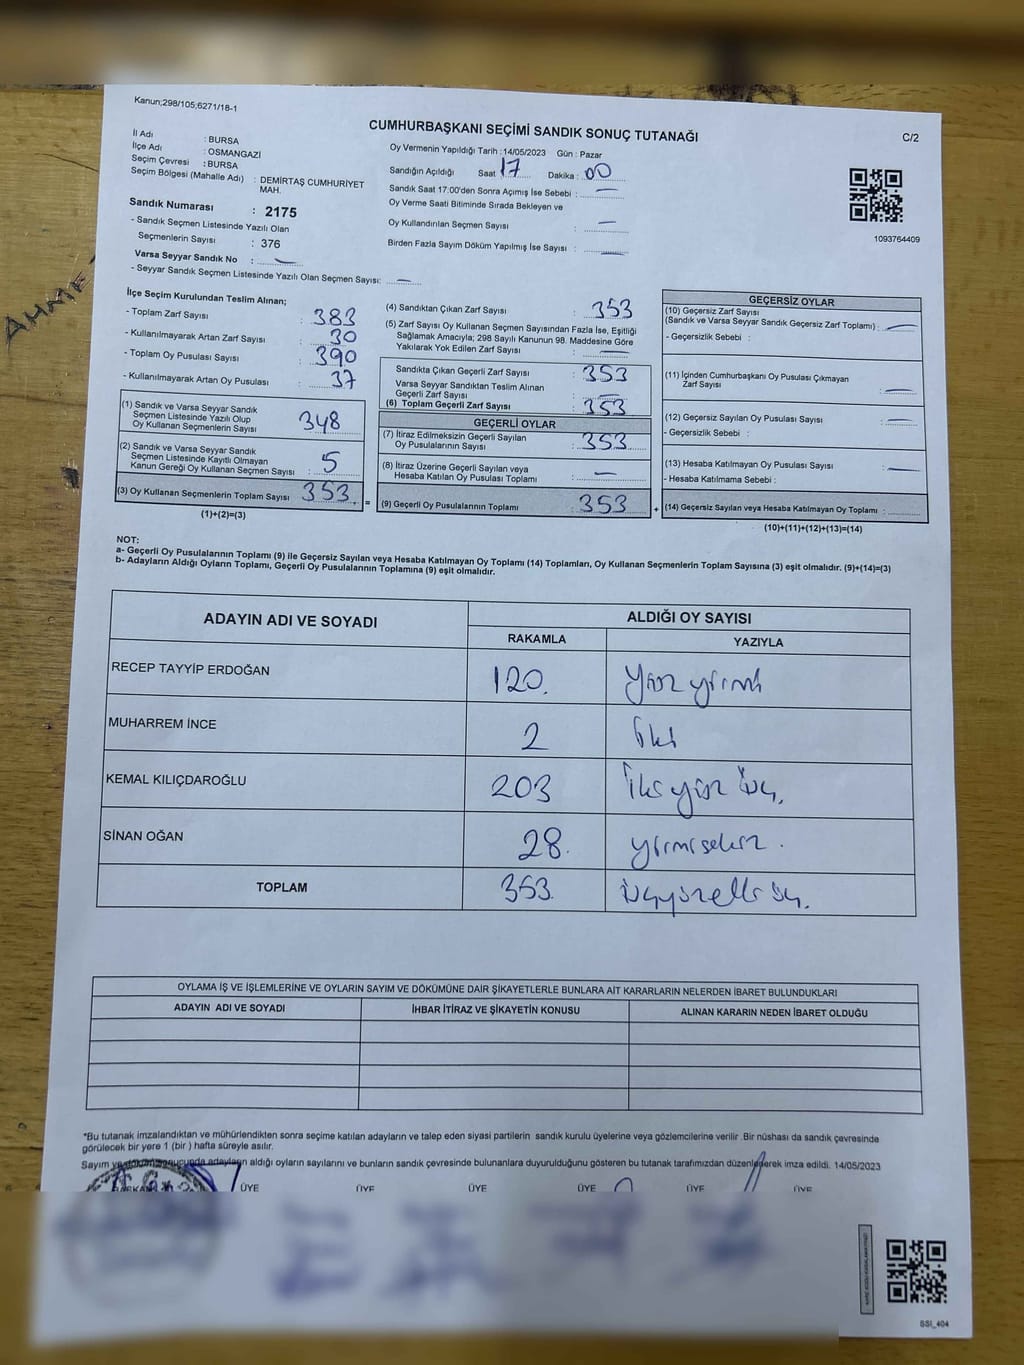 Kanun;298/105;6271/18-1
CUMHURBAŞKANI SEÇİMİ SANDIK SONUÇ TUTANAĞI
C/2
İl Adı : BURSA
İlçe Adı : OSMANGAZİ
Seçim Çevresi : BURSA
Seçim Bölgesi (Mahalle Adı) : DEMİRTAŞ CUMHURİYET
MAH.
Sandık Numarası : 2175
- Sandık Seçmen Listesinde Yazılı Olan
Seçmenlerin Sayısı : 376
Varsa Seyyar Sandık No : —
- Seyyar Sandık Seçmen Listesinde Yazılı Olan Seçmen Sayısı: —
Oy Vermenin Yapıldığı Tarih : 14/05/2023 Gün : Pazar
Sandığın Açıldığı Saat 17 Dakika : 00
Sandık Saat 17:00'den Sonra Açımış İse Sebebi : —
Oy Verme Saati Bitiminde Sırada Bekleyen ve
Oy Kullandırılan Seçmen Sayısı : —
Birden Fazla Sayım Döküm Yapılmış İse Sayısı : —
1093764409
AHME
İlçe Seçim Kurulundan Teslim Alınan;
- Toplam Zarf Sayısı : 383
- Kullanılmayarak Artan Zarf Sayısı : 30
- Toplam Oy Pusulası Sayısı : 390
- Kullanılmayarak Artan Oy Pusulası : 37
(1) Sandık ve Varsa Seyyar Sandık
Seçmen Listesinde Yazılı Olup
Oy Kullanan Seçmenlerin Sayısı : 348
(2) Sandık ve Varsa Seyyar Sandık
Seçmen Listesinde Kayıtlı Olmayan
Kanun Gereği Oy Kullanan Seçmen Sayısı : 5
(3) Oy Kullanan Seçmenlerin Toplam Sayısı 353 =
(1)+(2)=(3)
(4) Sandıktan Çıkan Zarf Sayısı : 353
(5) Zarf Sayısı Oy Kullanan Seçmen Sayısından Fazla İse, Eşitliği
Sağlamak Amacıyla; 298 Sayılı Kanunun 98. Maddesine Göre
Yakılarak Yok Edilen Zarf Sayısı : —
Sandıkta Çıkan Geçerli Zarf Sayısı : 353
Varsa Seyyar Sandıktan Teslim Alınan
Geçerli Zarf Sayısı : —
(6) Toplam Geçerli Zarf Sayısı : 353
GEÇERLİ OYLAR
(7) İtiraz Edilmeksizin Geçerli Sayılan
Oy Pusulalarının Sayısı : 353
(8) İtiraz Üzerine Geçerli Sayılan veya
Hesaba Katılan Oy Pusulası Toplamı : —
(9) Geçerli Oy Pusulalarının Toplamı : 353 +
GEÇERSİZ OYLAR
(10) Geçersiz Zarf Sayısı
(Sandık ve Varsa Seyyar Sandık Geçersiz Zarf Toplamı) : —
- Geçersizlik Sebebi :
(11) İçinden Cumhurbaşkanı Oy Pusulası Çıkmayan
Zarf Sayısı : —
(12) Geçersiz Sayılan Oy Pusulası Sayısı : —
- Geçersizlik Sebebi :
(13) Hesaba Katılmayan Oy Pusulası Sayısı : —
- Hesaba Katılmama Sebebi :
(14) Geçersiz Sayılan veya Hesaba Katılmayan Oy Toplamı :
(10)+(11)+(12)+(13)=(14)
NOT:
a- Geçerli Oy Pusulalarının Toplamı (9) ile Geçersiz Sayılan veya Hesaba Katılmayan Oy Toplamı (14) Toplamları, Oy Kullanan Seçmenlerin Toplam Sayısına (3) eşit olmalıdır. (9)+(14)=(3)
b- Adayların Aldığı Oyların Toplamı, Geçerli Oy Pusulalarının Toplamına (9) eşit olmalıdır.
ADAYIN ADI VE SOYADI
ALDIĞI OY SAYISI
RAKAMLA YAZIYLA
RECEP TAYYİP ERDOĞAN 120. Yüz yirmi
MUHARREM İNCE 2 iki
KEMAL KILIÇDAROĞLU 203 İki yüz üç.
SİNAN OĞAN 28. yirmi sekiz.
TOPLAM 353. üçyüzelli üç.
OYLAMA İŞ VE İŞLEMLERİNE VE OYLARIN SAYIM VE DÖKÜMÜNE DAİR ŞİKAYETLERLE BUNLARA AİT KARARLARIN NELERDEN İBARET BULUNDUKLARI
ADAYIN ADI VE SOYADI İHBAR İTİRAZ VE ŞİKAYETİN KONUSU ALINAN KARARIN NEDEN İBARET OLDUĞU
*Bu tutanak imzalandıktan ve mühürlendikten sonra seçime katılan adayların ve talep eden siyasi partilerin sandık kurulu üyelerine veya gözlemcilerine verilir .Bir nüshası da sandık çevresinde
görülecek bir yere 1 (bir ) hafta süreyle asılır.
Sayım ve döküm sonucunda adayların aldığı oyların sayılarını ve bunların sandık çevresinde bulunanlara duyurulduğunu gösteren bu tutanak tarafımızdan düzenlenerek imza edildi. 14/05/2023
ÜYE ÜYE ÜYE ÜYE ÜYE ÜYE
SSI_404